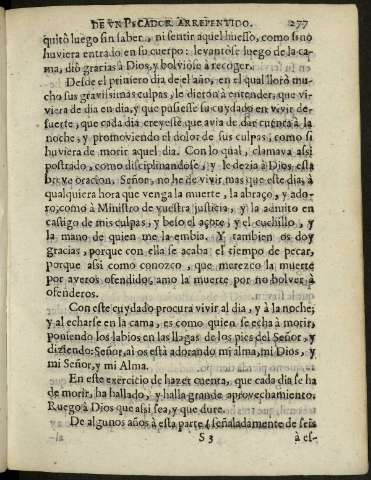 DE VN PECADOR ARREPENTIDO. 277
quitò luego sin saber, ni sentir aquel huesso, como si no
huviera entrado en su cuerpo: levantòse luego de la ca-
ma, diò gracias à Dios, y bolviòse à recoger.
Desde el primero dia de el año, en el qual llorò mu-
cho sus gravissimas culpas, le dieron à entender, que vi-
viera de dia en dia, y que pusiesse su cuydado en vivir de
suerte, que cada dia creyesse que avia de dar cuenta à la
noche, y promoviendo el dolor de sus culpas, como si
huviera de morir aquel dia. Con lo qual, clamava assi
postrado, como disciplinandose, y le dezia à Dios esta
breve oracion, Señor, no he de vivir mas que este dia, à
qualquiera hora que venga la muerte, la abraço, y ado-
ro, como à Ministro de vuestra justicia, y la admito en
castigo de mis culpas, y beso el açote, y el cuchillo, y
la mano de quien me la embia. Y tambien os doy
gracias, porque con ella se acaba el tiempo de pecar,
porque assi como conozco, que merezco la muerte
por averos ofendido, amo la muerte por no bolver à
ofenderos.
Con este cuydado procura vivir al dia, y à la noche,
y al echarse en la cama, es como quien se echa à morir,
poniendo los labios en las llagas de los pies del Señor, y
diziendo: Señor, ai os està adorando mi alma, mi Dios, y
mi Señor, y mi Alma.
En este exercicio de hazer cuenta, que cada dia se ha
de morir, ha hallado, y halla grande aprovechamiento.
Ruego à Dios que assi sea, y que dure.
De algunos años à esta parte (señaladamente de seis
S 3 à es-